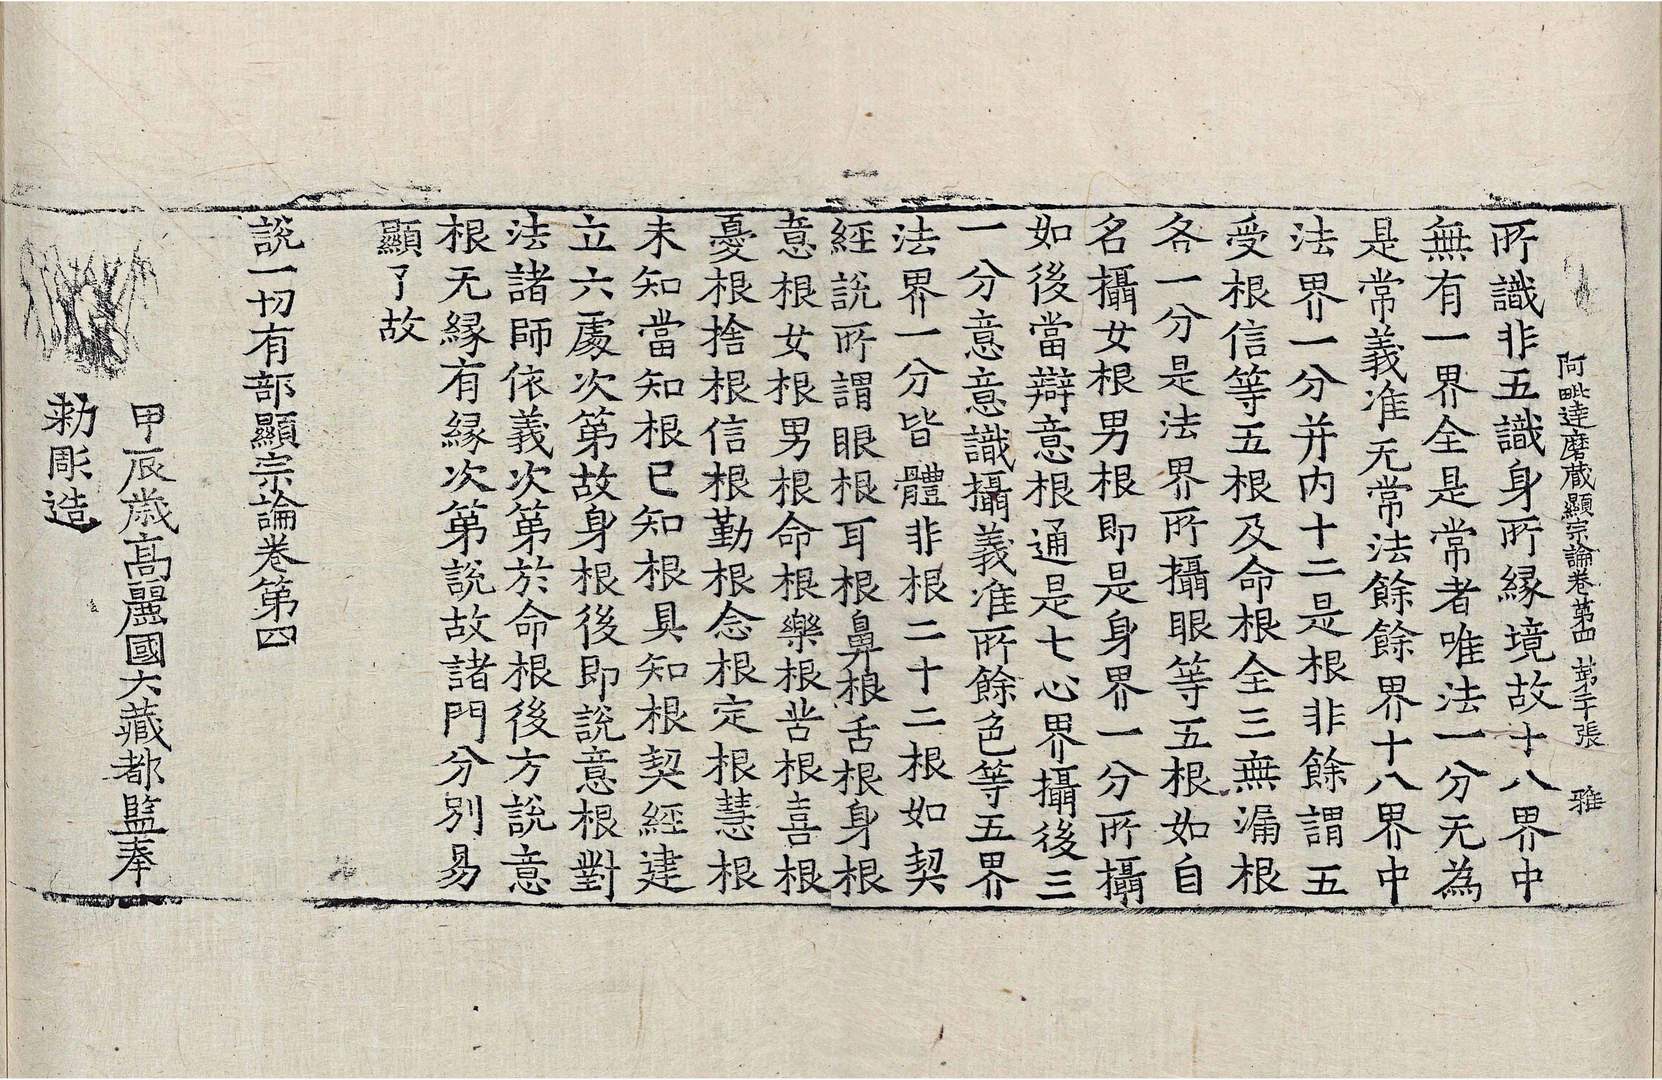 阿毗達磨藏顯宗論卷第四 第二十張 雅
所識非五識身所緣境故十八界中
無有一界全是常者唯法一分无為
是常義准无常法餘餘界十八界中
法界一分并內十二是根非餘謂五
受根信等五根及命根全三無漏根
各一分是法界所攝眼等五根如自
名攝女根男根即是身界一分所攝
如後當辯意根通是七心界攝後三
一分意意識攝義准所餘色等五界
法界一分皆體非根二十二根如契
經說所謂眼根耳根鼻根舌根身根
意根女根男根命根樂根苦根喜根
憂根捨根信根勤根念根定根慧根
未知當知根已知根具知根契經建
立六處次第故身根後即說意根對
法諸師依義次第於命根後方說意
根无緣有緣次第說故諸門分別易
顯了故
說一切有部顯宗論卷第四
甲辰歲高麗國大藏都監奉
勑彫造